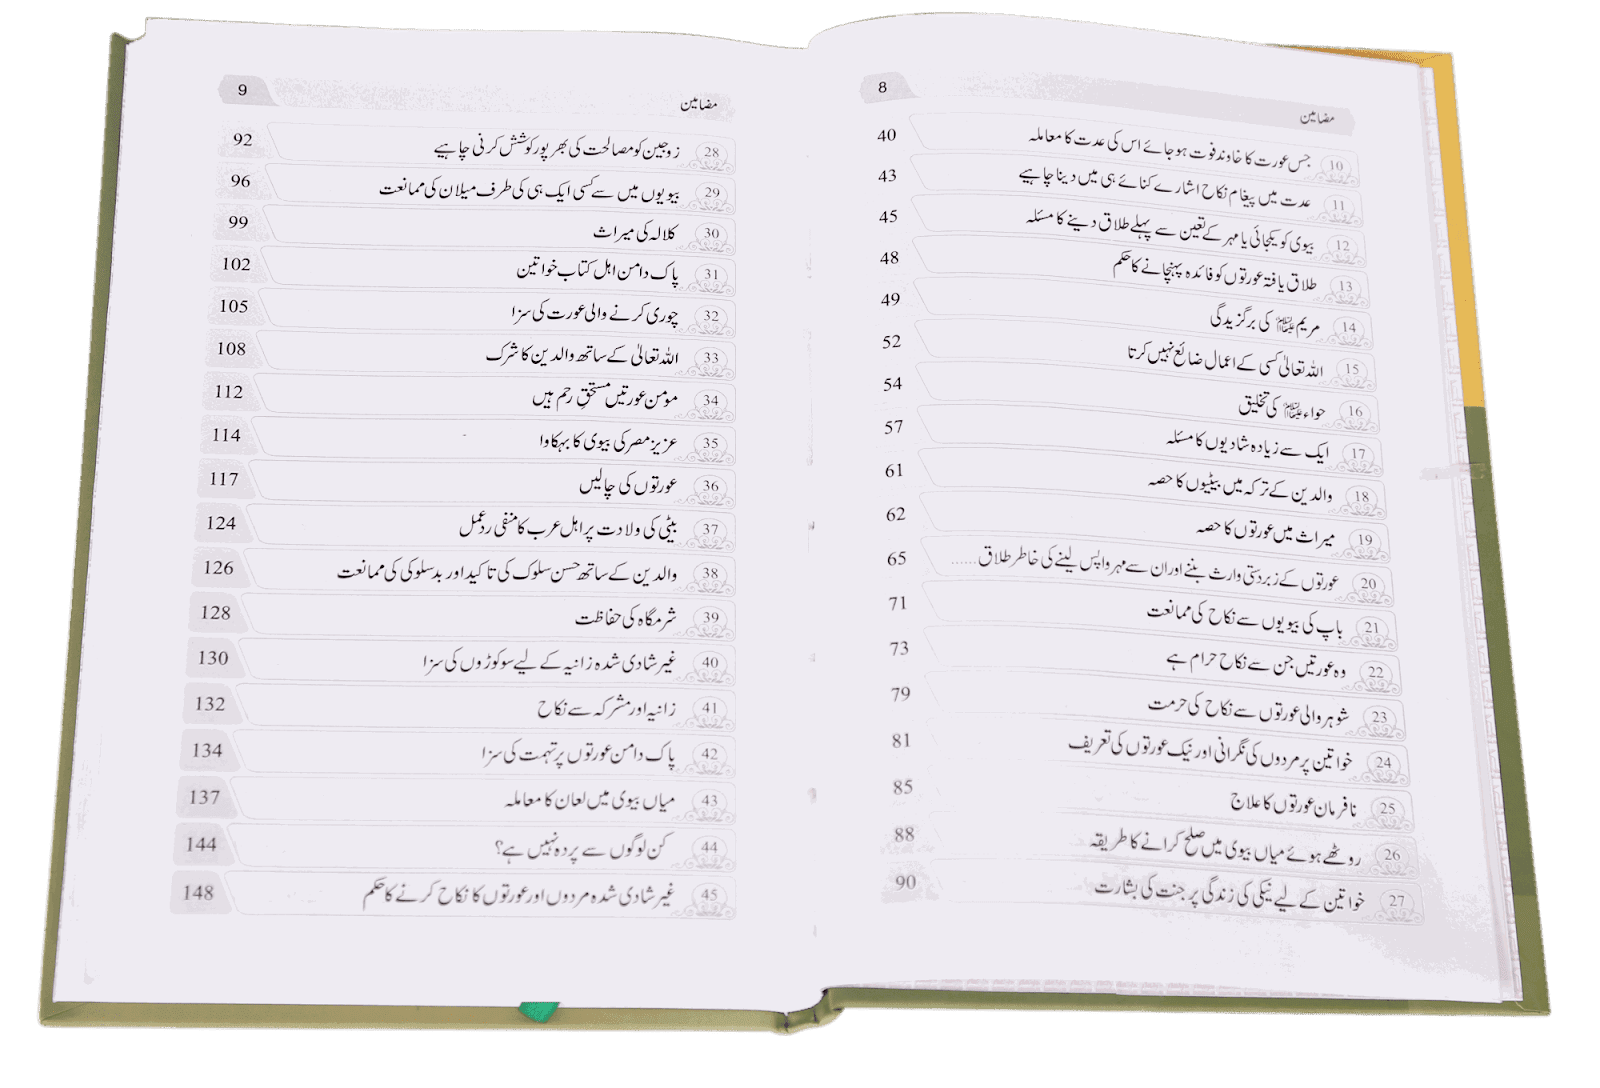 مضامین 8
10 جس عورت کا خاوند فوت ہو جائے اس کی عدت کا معاملہ 40
11 عدت میں پیغام نکاح اشارے کنائے ہی میں دینا چاہیے 43
12 بیوی کو یکجائی یا مہر کے تعین سے پہلے طلاق دینے کا مسئلہ 45
13 طلاق یافتہ عورتوں کو فائدہ پہنچانے کا حکم 48
14 مریم علیہا السلام کی برگزیدگی 49
15 اللہ تعالیٰ کسی کے اعمال ضائع نہیں کرتا 52
16 حواء علیہا السلام کی تخلیق 54
17 ایک سے زیادہ شادیوں کا مسئلہ 57
18 والدین کے ترکہ میں بیٹیوں کا حصہ 61
19 میراث میں عورتوں کا حصہ 62
20 عورتوں کے زبردستی وارث بننے اور ان سے مہر واپس لینے کی خاطر طلاق ...... 65
21 باپ کی بیویوں سے نکاح کی ممانعت 71
22 وہ عورتیں جن سے نکاح حرام ہے 73
23 شوہر والی عورتوں سے نکاح کی حرمت 79
24 خواتین پر مردوں کی نگرانی اور نیک عورتوں کی تعریف 81
25 نافرمان عورتوں کا علاج 85
26 روٹھے ہوئے میاں بیوی میں صلح کرانے کا طریقہ 88
27 خواتین کے لیے نیکی کی زندگی پر جنت کی بشارت 90
مضامین 9
28 زوجین کو مصالحت کی بھر پور کوشش کرنی چاہیے 92
29 بیویوں میں سے کسی ایک ہی کی طرف میلان کی ممانعت 96
30 کلالہ کی میراث 99
31 پاک دامن اہل کتاب خواتین 102
32 چوری کرنے والی عورت کی سزا 105
33 اللہ تعالیٰ کے ساتھ والدین کا شرک 108
34 مومن عورتیں مستحقِ رحم ہیں 112
35 عزیز مصر کی بیوی کا بہکاوا 114
36 عورتوں کی چالیں 117
37 بیٹی کی ولادت پر اہل عرب کا منفی ردعمل 124
38 والدین کے ساتھ حسن سلوک کی تاکید اور بدسلوکی کی ممانعت 126
39 شرمگاہ کی حفاظت 128
40 غیر شادی شدہ زانیہ کے لیے سو کوڑوں کی سزا 130
41 زانیہ اور مشرکہ سے نکاح 132
42 پاک دامن عورتوں پر تہمت کی سزا 134
43 میاں بیوی میں لعان کا معاملہ 137
44 کن لوگوں سے پردہ نہیں ہے؟ 144
45 غیر شادی شدہ مردوں اور عورتوں کا نکاح کرنے کا حکم 148